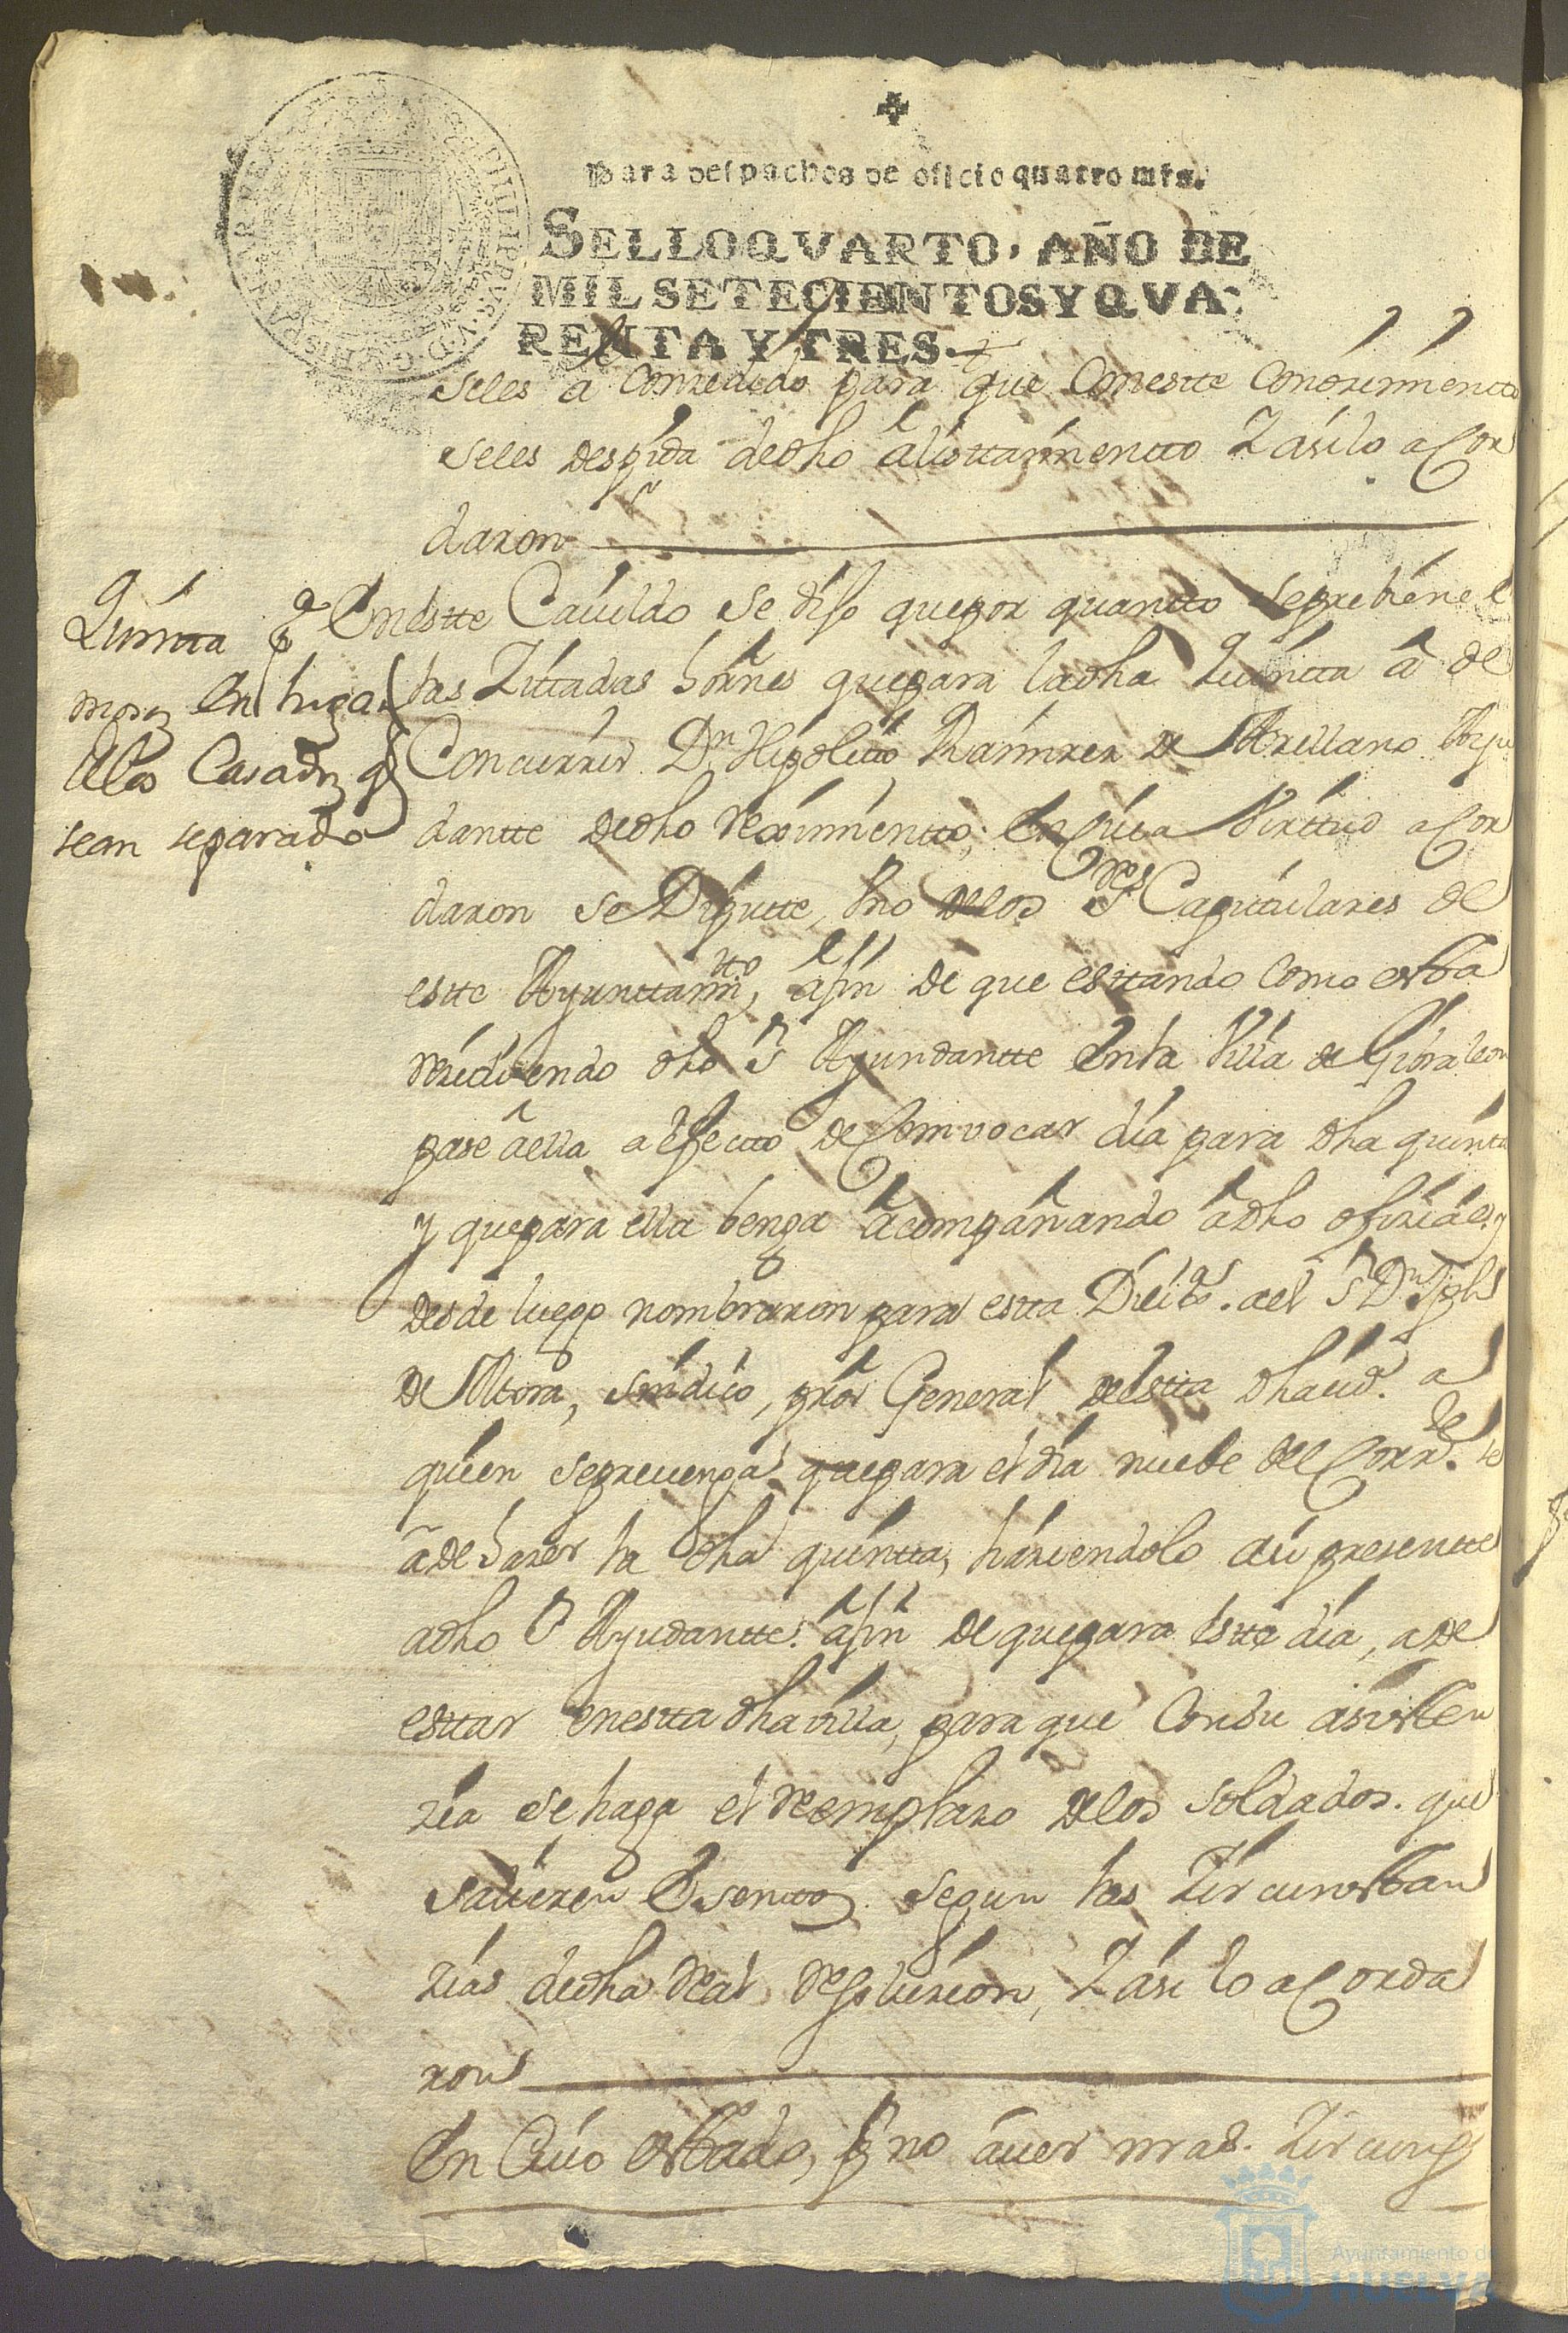 ✠
Para despachos de oficio quatro mrs.
SELLO QVARTO, AÑO DE
MIL SETECIENTOS Y QVA-
RENTA Y TRES.
PHILIPPVS V D G HISPANIAR REX
seles a Conzedido para que Conestte Conozimiento
seles despida dedho alisttamientto Zasilo aCor
daron
Quintta de
mozos en lugar
de los Casados q
sean separado
Enestte Cavildo se dijo quepor quantto sepreviene e
las Zittadas hornes quepara ladha quintta a de
Concurrir Dn Hipolitto Ramirez de Arellano Ayu
dantte dedho reximientto; En Cuia Virttud aCor
daron se Dipute Vno delos Sres Capitulares de
estte Ayunttamtto, afin de que esttando como esta
residiendo dho Sr Ayundantte Enla Villa de Gibraleon
pase aella a Efectto de Comvocar dia para dha quintta
y quepara ella benga acompañando adho ofizial, y
desde luego nombraron para estta a el Sr Dn
de Mora, sindico, pror General de estta dha
quien seprevenga quepara el dia nuebe del Corrte. se
a de hazer la dha quintta, haziendolo asi presentte
adho Sr Ayudantte. afin de quepara Estte dia, a de
esttar enestta dha villa, para que Consu asisten
zia se haga el reemplazo delos soldados. que
salieren Esenttos segun las Zircunstan
zias dedha Real resoluzion, Zasi lo aCorda
ron
En Cuio estado, pr no aver mas. Zircuns
Ayuntamiento de
HUELVA